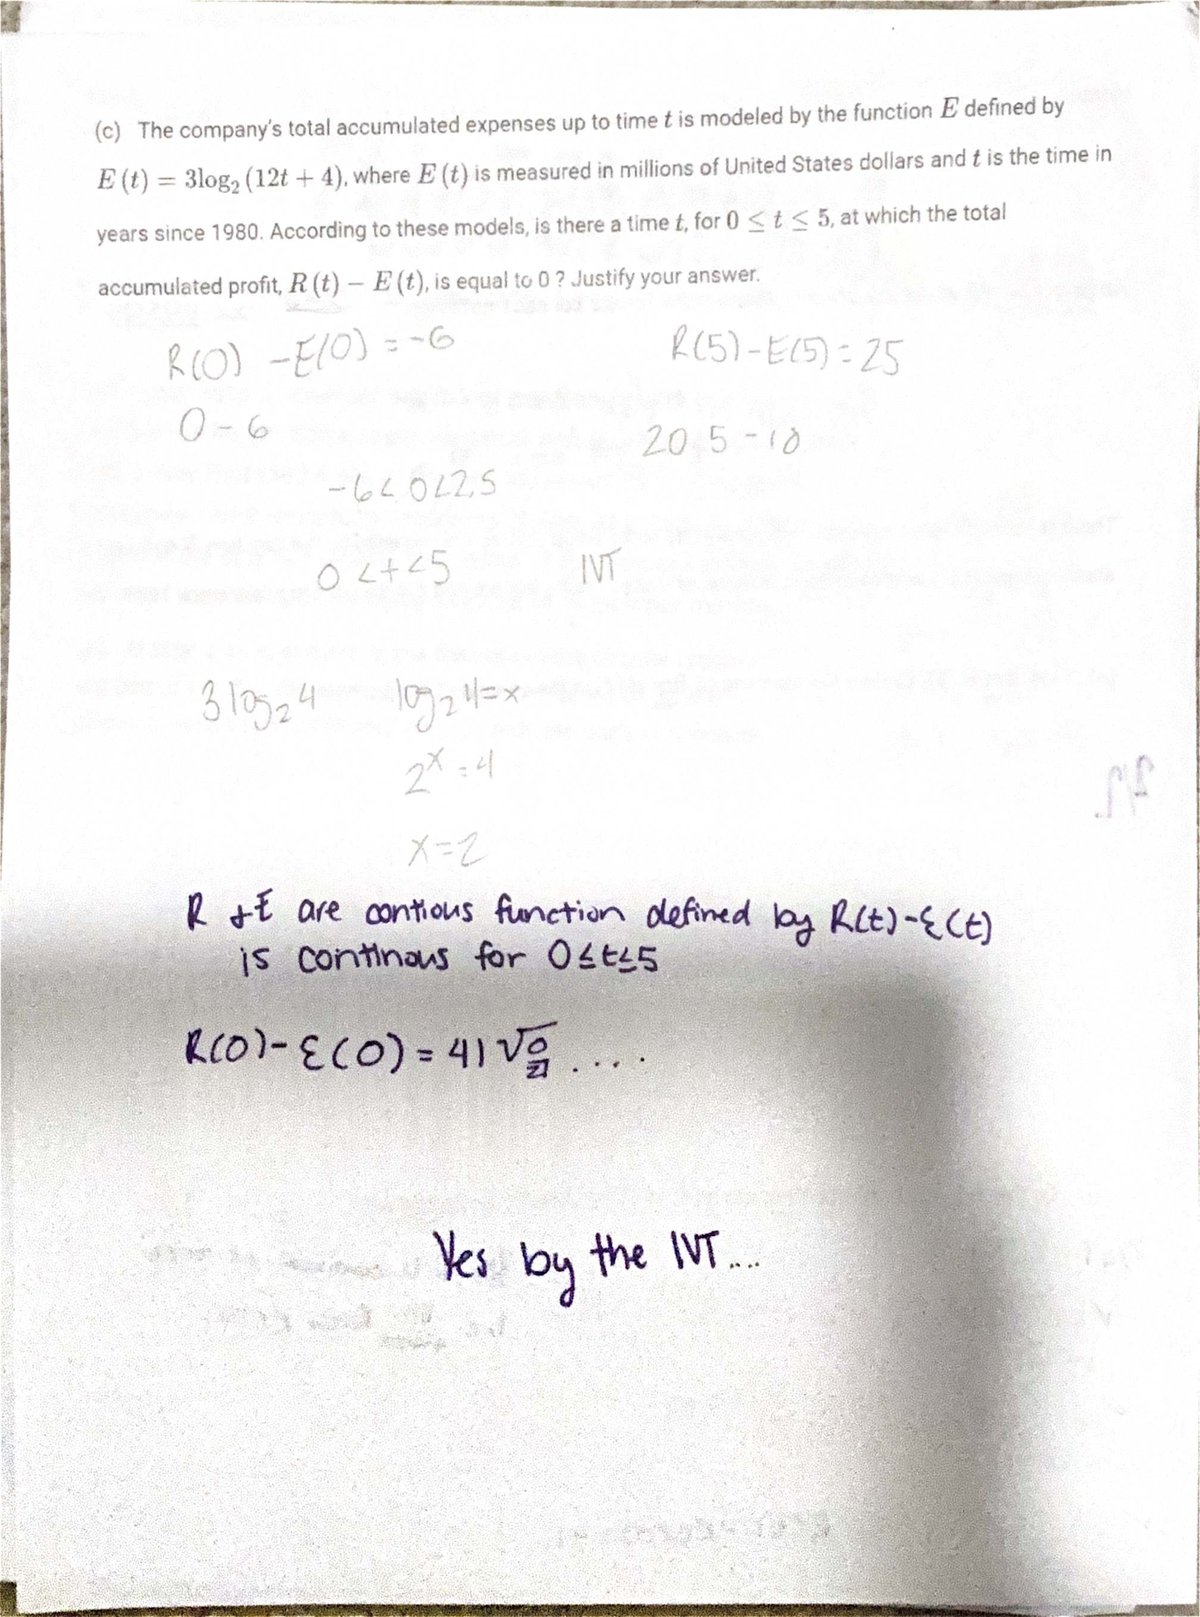 (c) The company's total accumulated expenses up to time t is modeled by the function E defined by
E (t) = 3log₂ (12t + 4), where E (t) is measured in millions of United States dollars and t is the time in
years since 1980. According to these models, is there a time t, for 0 ≤ t ≤ 5, at which the total
accumulated profit, R (t) − E (t), is equal to 0 ? Justify your answer.
R(0) -E(0) = -6 R(5)-E(5) = 25
0-6 20 5 -18
-6<0<2.5
0 <t<5 IVT
3 log₂ 4 log₂ 4=x
2ˣ = 4
x=2
R & E are contious function defined by R(t)-E(t)
is cointinous for 0≤t≤5
R(0)-E(0) = 41 √0/21 ....
Yes by the IVT....